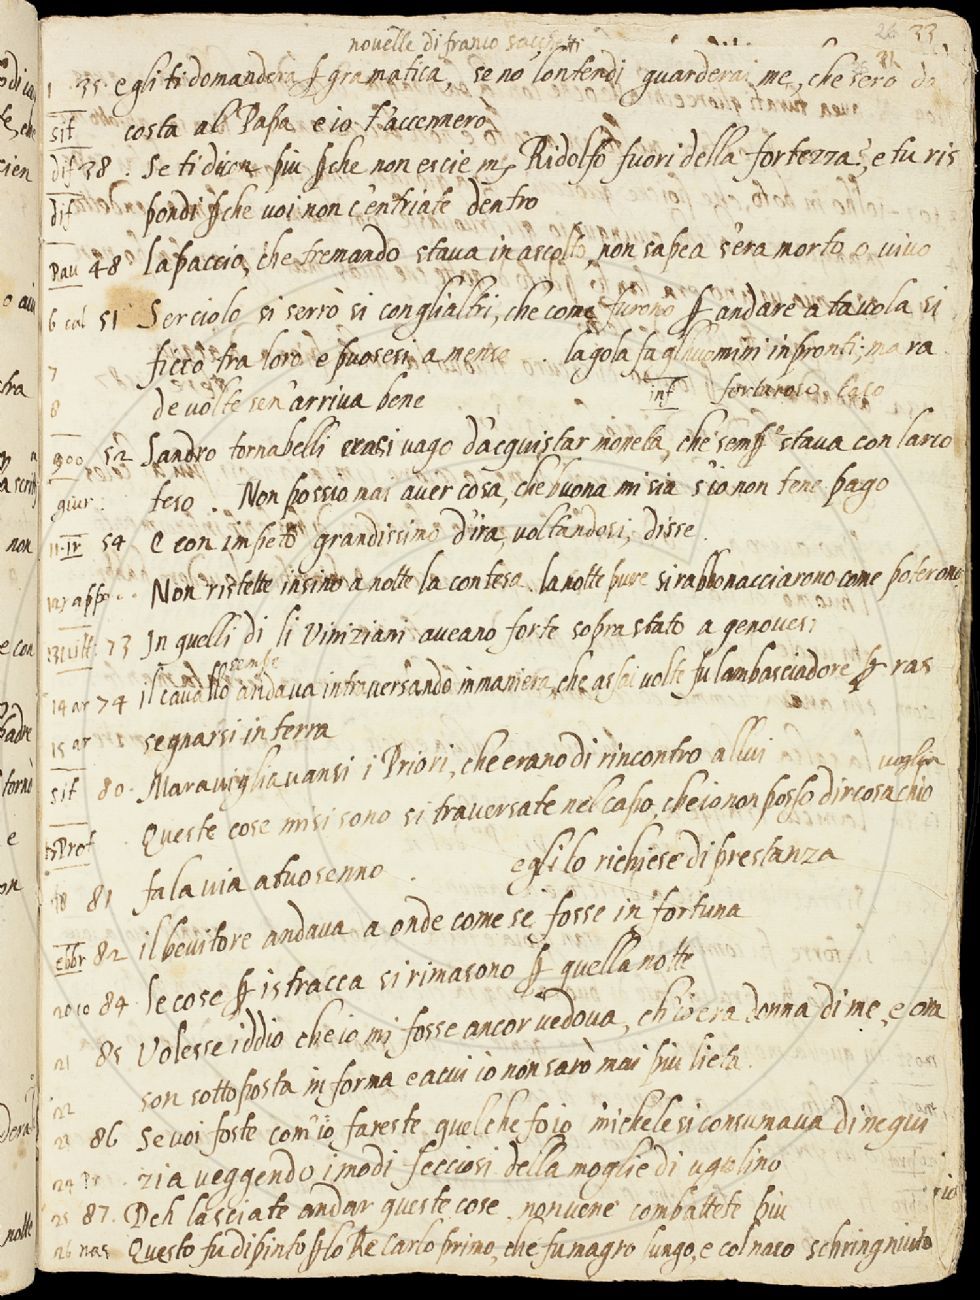 novelle di franco sacchetti
26 33
1 35. egli ti domandera ꝑ gramatica, se no' lontendi guarderai me, che sero da
sit costa al Papa e io t'accennero
dif 38. Se ti dicon più ꝑche non escie mr Ridolfo fuori della fortezza, e tu ris
dif pondi ꝑche voi non c'entriate dentro
Pau 48 lapaccio, che tremando stava in ascolto, non sapea s'era morto o vivo
6 col 51 Ser ciolo si serrò si con gli altri, che come furono ꝑ andare a tavola si
7 ficcò tra loro e puosesi a mensa . la gola fa gl'huomini inpronti, ma ra
8 de volte sen'arriva bene inf
goo 52 Sandro tornabelli erasi vago d'acquistar moneta, che semꝑ stava con l'arco
giur. teso . Non possio mai aver cosa, che buona mi sia s'io non tene pago
11. Ir 54 E con impeto grandissimo d'ira, voltandosi, disse.
12 appo.. Non ristette insino a notte la contesa la notte pure si rabbonacciarono come poterono
73 In quelli di li Viniziani aveano forte soprastato a genovesi
sempre
14 ar 74 il cavallo andava intraversando in maniera, che assai volte fu l'ambasciadore ꝑ ras
15 ar segnarsi in terra
sit 80. Maravigliavansi i Priori, che erano di rincontro a llui
voglia
Prof . Queste cose mi si sono si traversate nel capo, che io non posso dir cosa ch'io
81 fa la via a tuo senno . egli lo richiese di prestanza
ebbr 82 il bevitore andava a onde come se fosse in fortuna
20 co 84 le cose ꝑ istracca si rimasono ꝑ quella notte
21 85 Volesse iddio che io mi fosse ancor vedova, ch'io era donna di me, e ora
22 son sottoposta in forma e a cui io non sarò mai più lieta.
23 86 Se voi foste com'io, fareste quel che fo io michele si consumava di nequi
24 . zia veggendo i modi fecciosi della moglie di ugolino
25 87. Deh lasciate andar queste cose, non vene combattete più
26 nas Questo fu dipinto ꝑ lo Re Carlo primo, che fu magro lungo, e col naso schringniuto